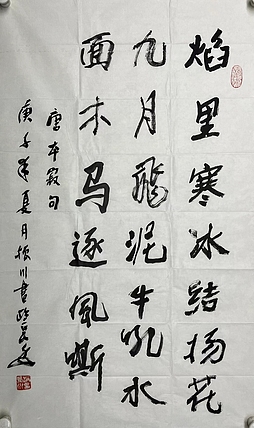 焰里寒冰結杨花
九月飛泥牛吼水
面木马逐風嘶
唐本寂句
庚子年夏月振川書於長安